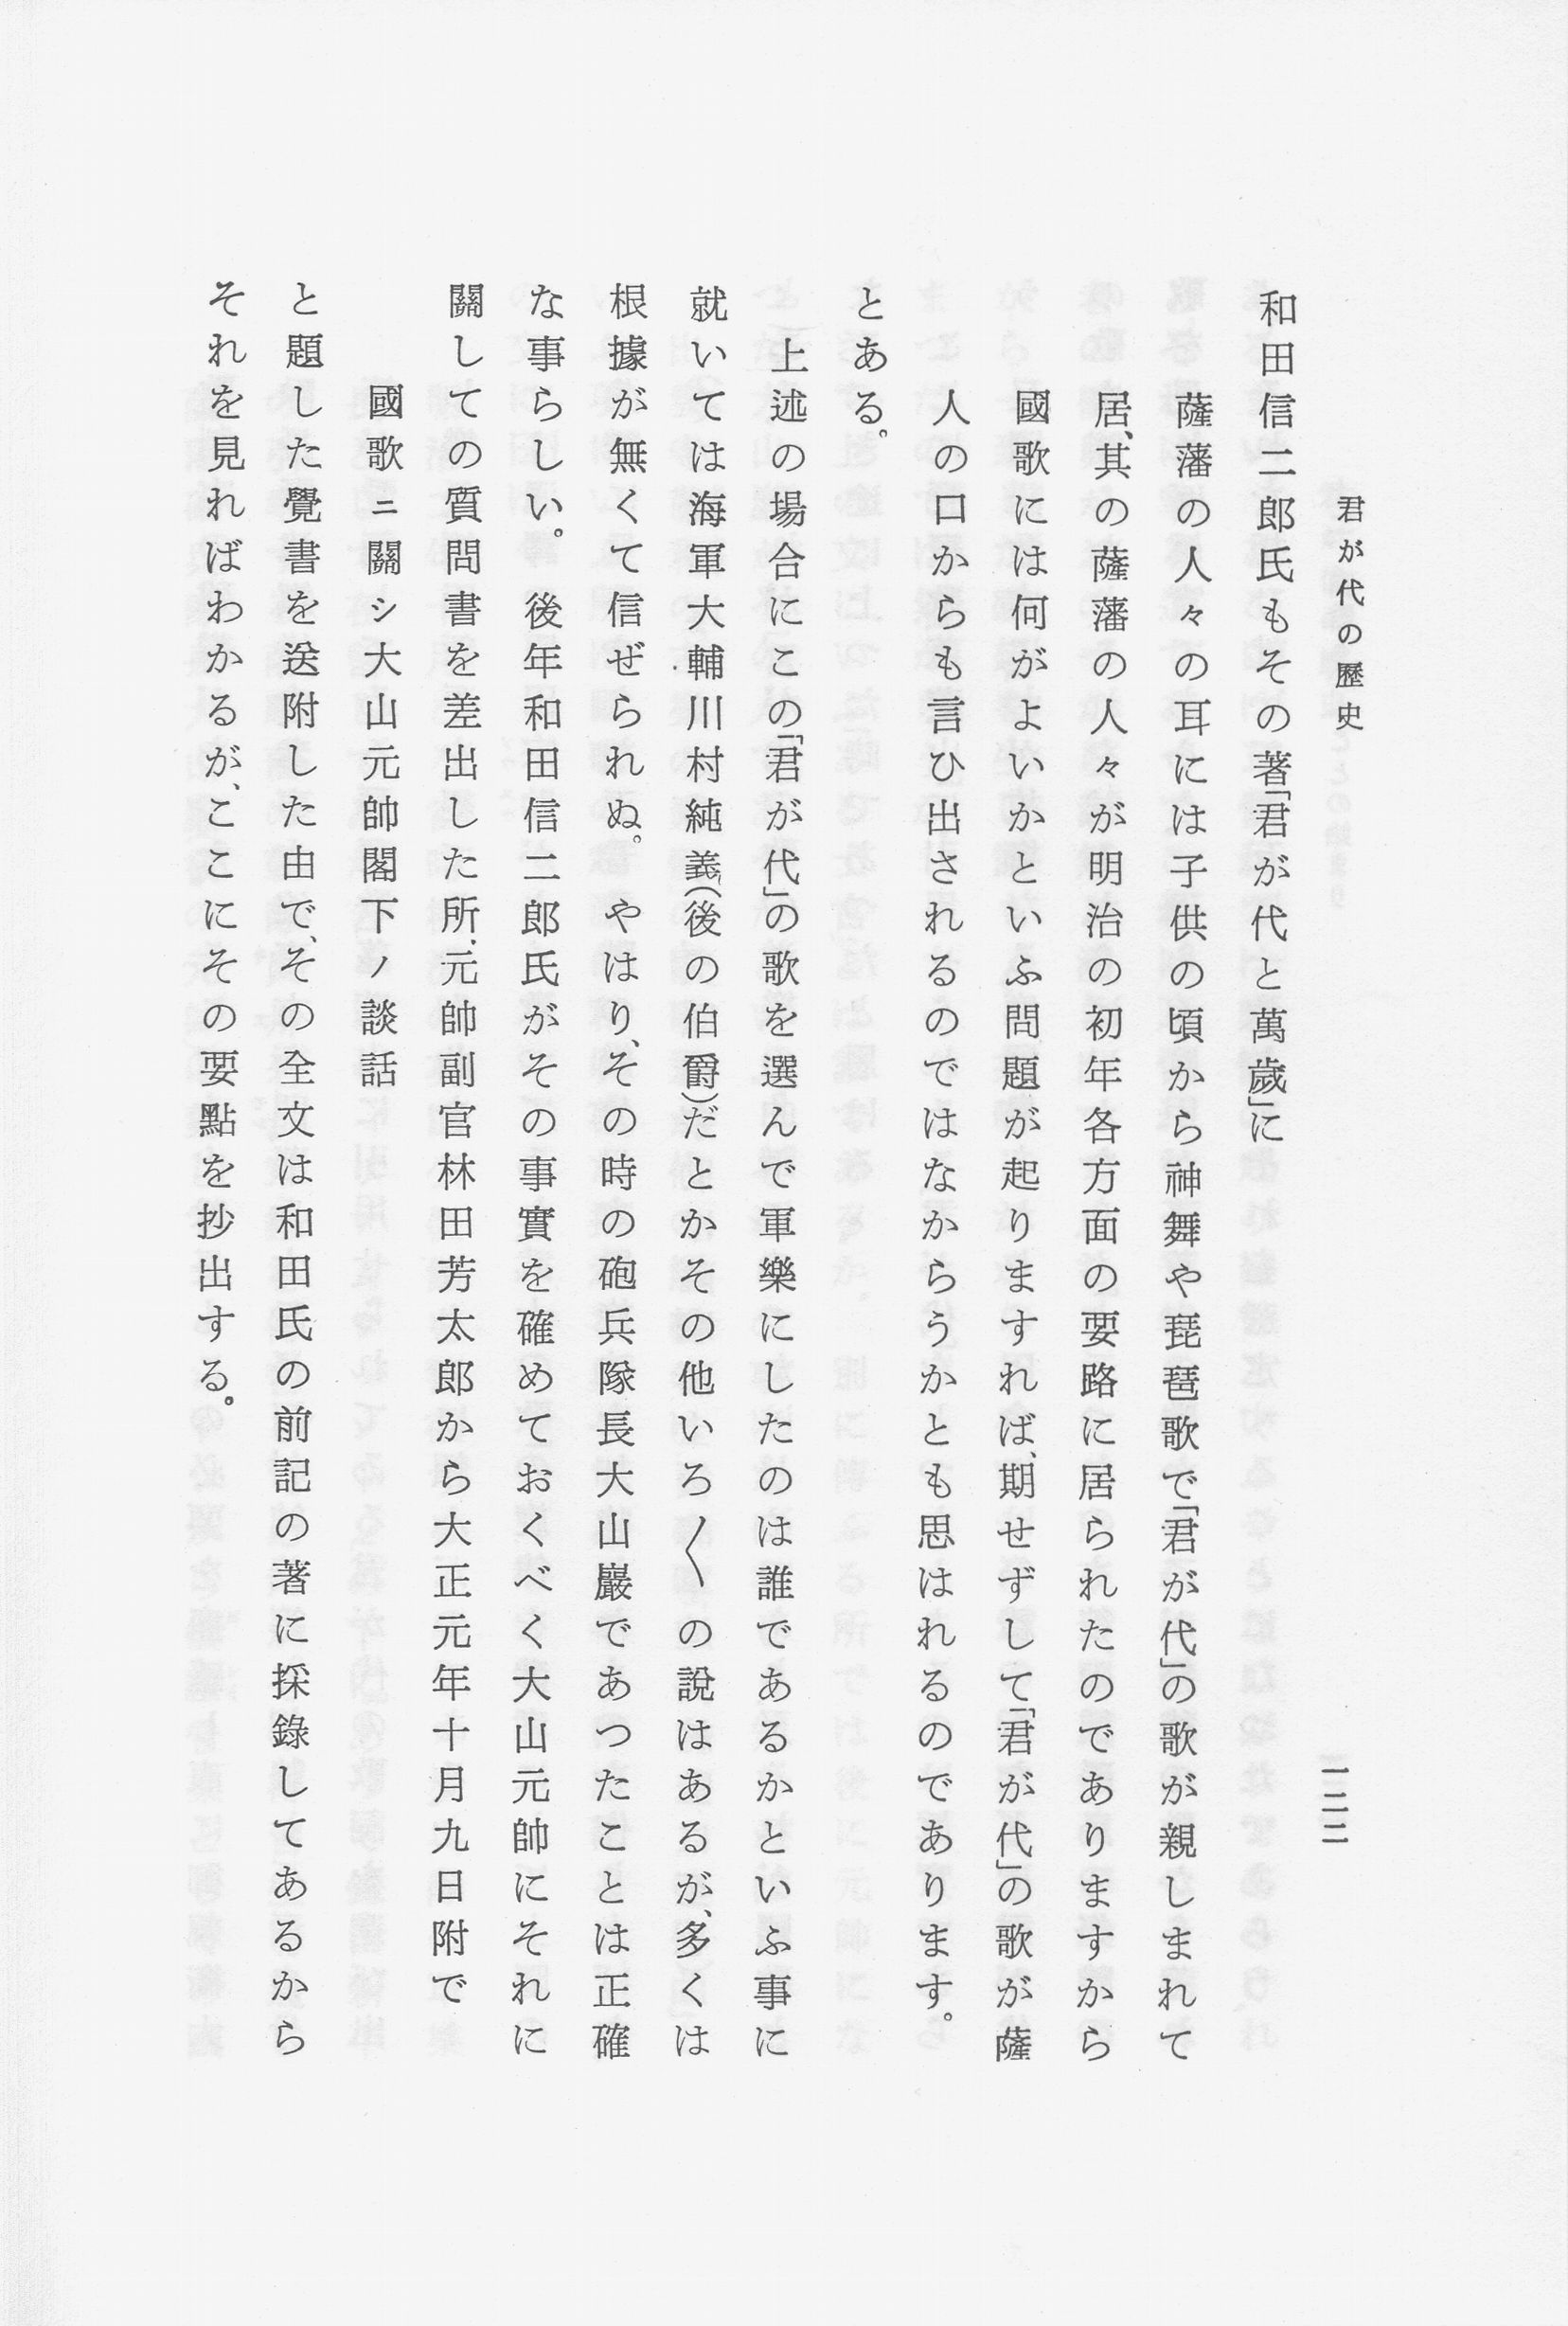 君が代の歷史
一二二
和田信二郎氏もその著「君が代と萬歲」に
薩藩の人々の耳には子供の頃から神舞や琵琶歌で「君が代」の歌が親しまれて
居、其の薩藩の人々が明治の初年各方面の要路に居られたのでありますから
國歌には何がよいかといふ問題が起りますれば、期せずして「君が代」の歌が薩
人の口からも言ひ出されるのではなからうかとも思はれるのであります。
とある。
上述の場合にこの「君が代」の歌を選んで軍樂にしたのは誰であるかといふ事に
就いては海軍大輔川村純義(後の伯爵)だとかその他いろ〱の說はあるが、多くは
根據が無くて信ぜられぬ。やはり、その時の砲兵隊長大山巖であつたことは正確
な事らしい。後年和田信二郎氏がその事實を確めておくべく大山元帥にそれに
關しての質問書を差出した所、元帥副官林田芳太郎から大正元年十月九日附で
國歌ニ關シ大山元帥閣下ノ談話
と題した覺書を送附した由で、その全文は和田氏の前記の著に採錄してあるから
それを見ればわかるが、ここにその要點を抄出する。